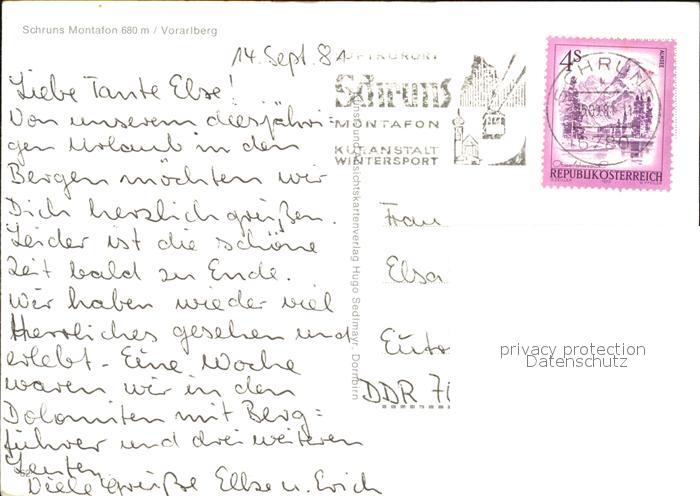 Schruns Montafon 680 m / Vorarlberg
14. Sept. 81
Liebe Tante Else!
Von unserem diesjähri-
gen Urlaub in den
Bergen möchten wir
Dich herzlich grüßen.
Leider ist die schöne
Zeit bald zu Ende.
Wir haben wieder viel
Herrliches gesehen und
erlebt. Eine Woche
waren wir in den
Dolomiten mit Berg=
führer und drei weiteren
Leuten.
Viele Grüße Elbse u. Erich
LUFTKURORT
Schruns
MONTAFON
KURANSTALT
WINTERSPORT
4S
ALMSEE
REPUBLIK ÖSTERREICH
SCHRUNS
6780
Kunst- und Ansichtskartenverlag Hugo Sedlmayr, Dornbirn
Frau
Elsa
DDR 71
privacy protection
Datenschutz